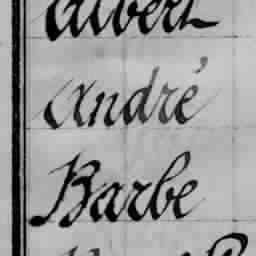 Albert
André
Barbe